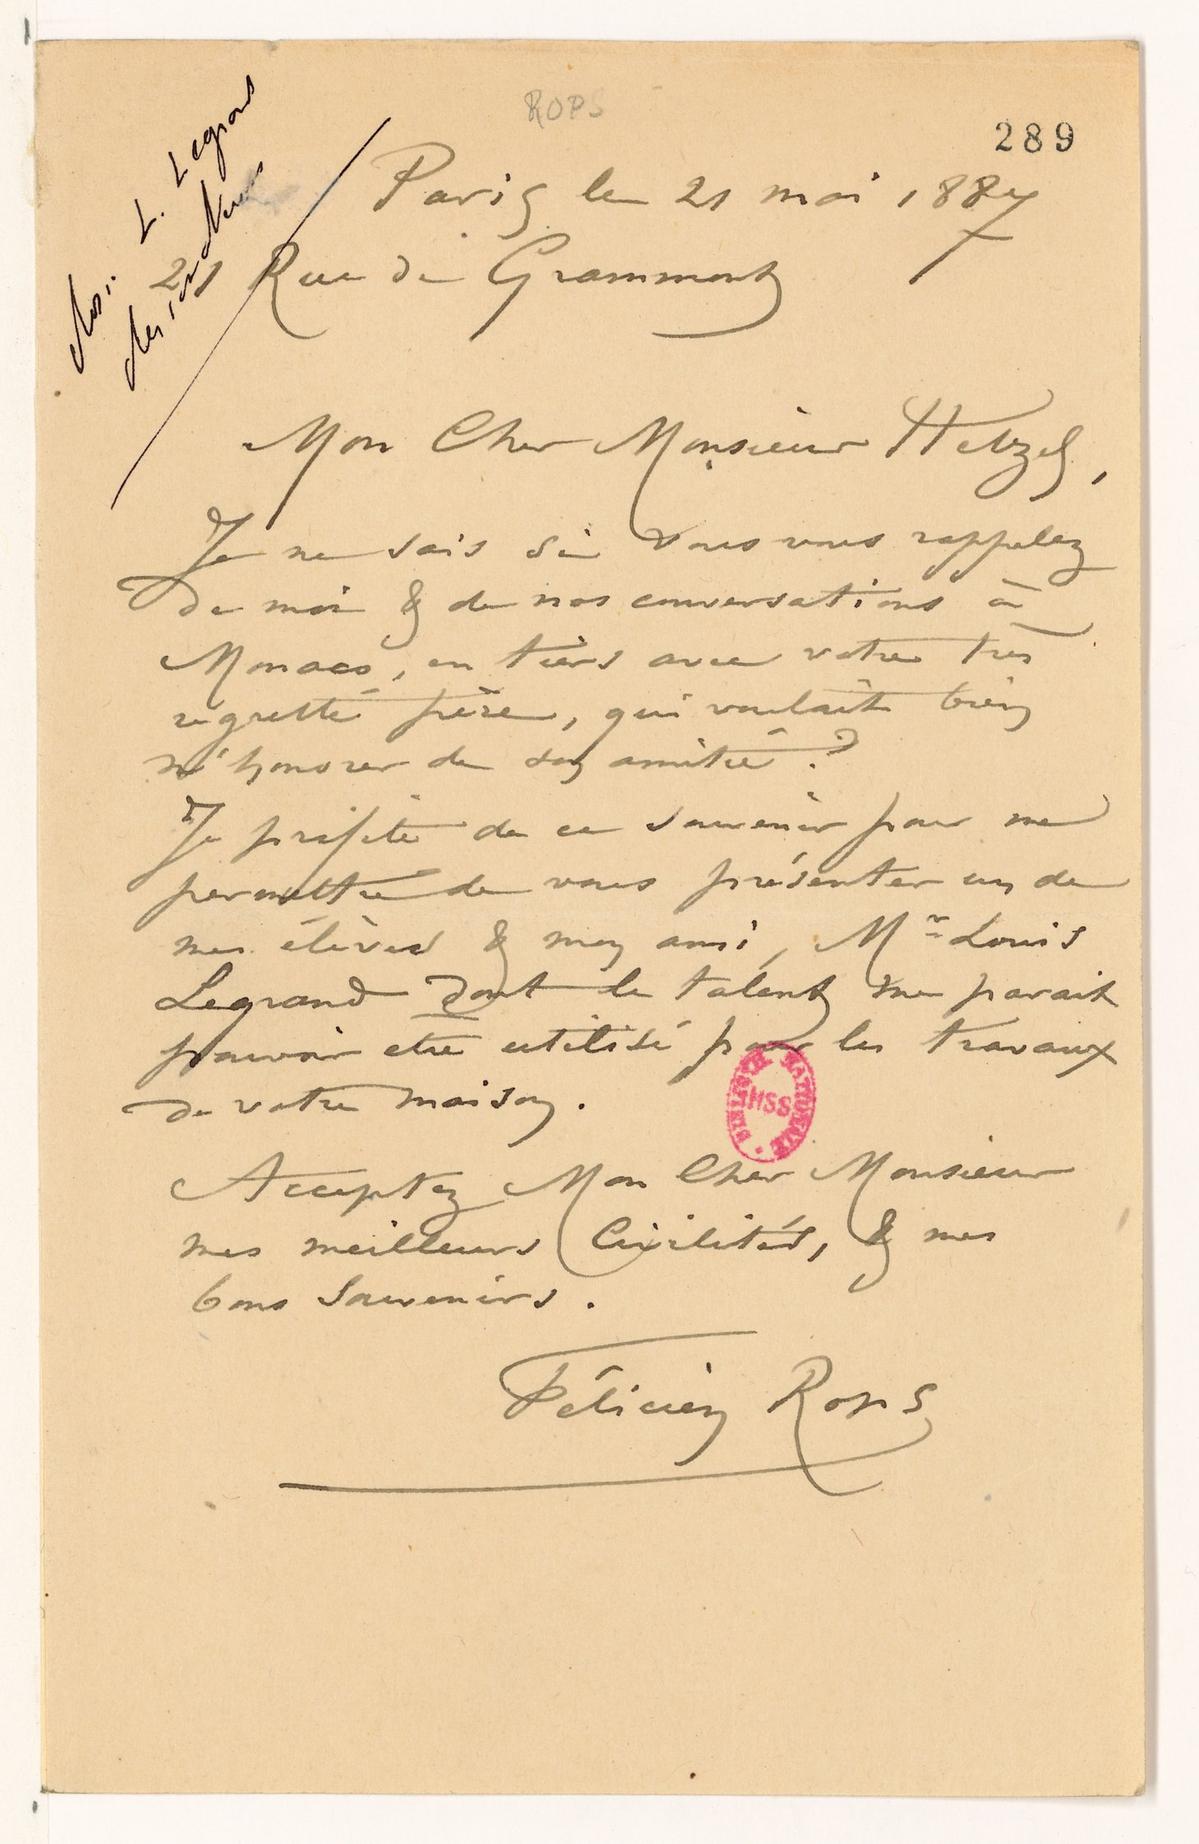 ROPS
289
L. Legrand
dessinateur
Paris le 21 mai 1887
21 Rue de Grammont
Mon Cher Monsieur Hetzel,
Je ne sais si vous vous rappelez
de moi & de nos conversations à
Monaco, en tiers avec votre très
regretté père, qui voulait bien
m'honorer de son amitié ?
Je profite de ce souvenir pour me
permettre de vous présenter un de
mes élèves & mon ami, Mr Louis
Legrand dont le talent me parait
pouvoir etre utilisé pour les travaux
de votre maison.
Acceptez Mon Cher Monsieur
mes meilleurs Civilités, & mes
bons souvenirs.
Félicien Rops
BIBLIOTH NATIONALE
MSS